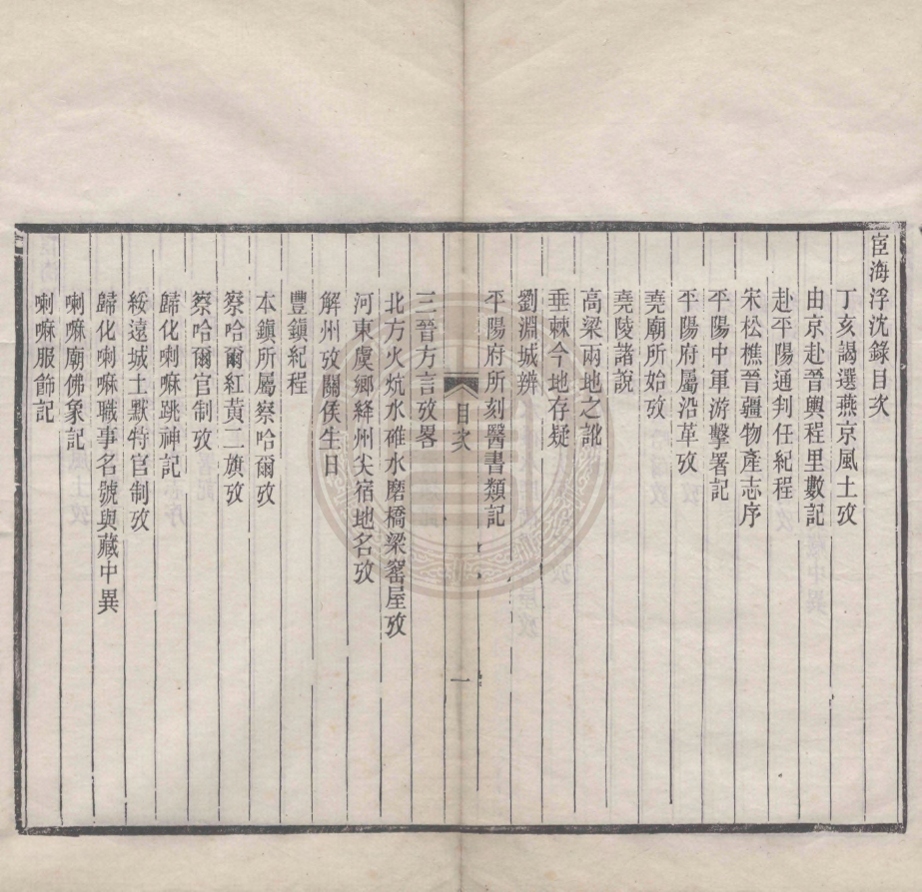 宦海浮沈錄目次
丁亥謁選燕京風土攷
由京赴晉輿程里數記
赴平陽通判任紀程
宋松樵晉疆物產志序
平陽中軍游擊署記
平陽府屬沿革攷
堯廟所始攷
堯陵諸說
高梁兩地之訛
垂棘今地存疑
劉淵城辨
平陽府所刻醫書類記
目次
一
三晉方言攷畧
北方火炕水碓水磨橋梁窰屋攷
河東虞鄉絳州尖宿地名攷
解州攷關侯生日
豐鎮紀程
本鎮所屬察哈爾攷
察哈爾紅黃二旗攷
察哈爾官制攷
歸化喇嘛跳神記
綏遠城土默特官制攷
歸化喇嘛職事名號與藏中異
喇嘛廟佛象記
喇嘛服飾記